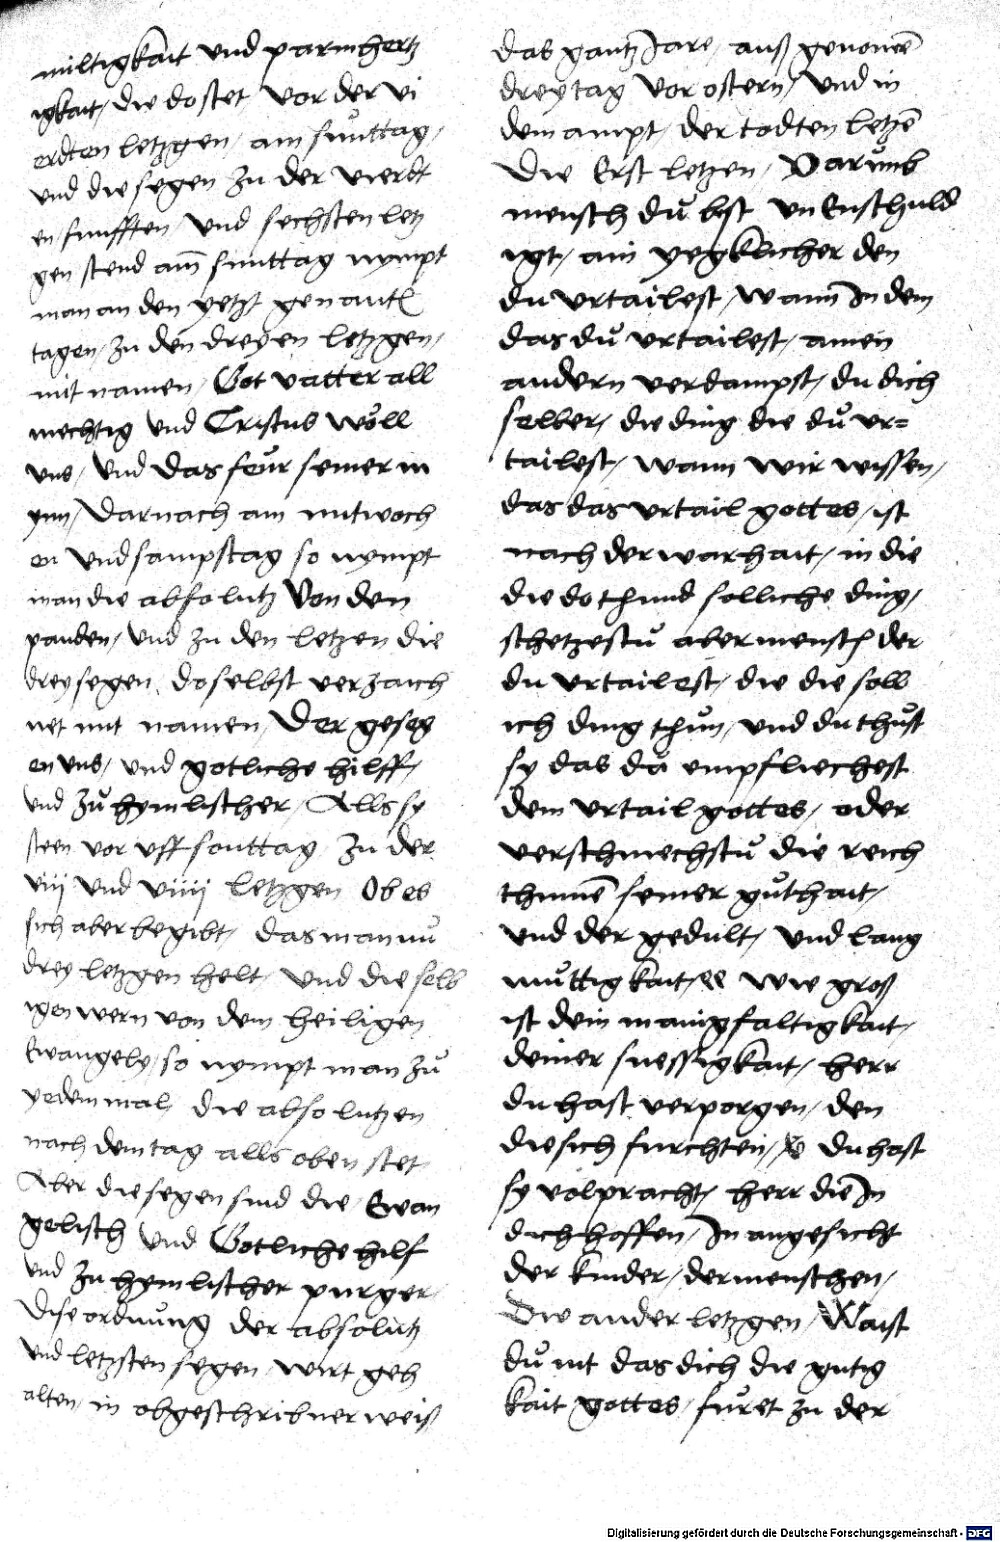 miltigkait und parmhertz
igkait, die do stet vor der vi
erdten letzgen, am suntag,
und die segen zu der vierdt
en, funfften, und sechsten letz
gen stend am sunttag nympt
man an den yetzt genantē
tagen, zu den dreyen letzgen,
mit namen, Got vatter all
mechtig und Cristus wöll
uns, und das feür seiner m
ynn, Darnach am mitwoch
en und sampstag so nympt
man die absolutz Von den
panden, und zu den letzen die
drey segen, doselbst verzaich
net mit namen, Der geseg
en uns, und gotliche hilff,
und zů hymlischer, Alls sy
steen vor uff sonttag zu der
viij und viiij letzgen Ob es
sich aber begibt, das man nů
drey letzgen helt, und die selb
igen wern von dem heiligen
Ewangely, so nympt man zů
yedem mal, die absolutzen
nach dem tag alls oben stet
Aber die segen sind die Ewan
gelisch und Gotliche hilf
und zu hymlischer purger,
Dise ordnůng der absolutz
und letzsten segen, wirt geh
alten, in obgeschribner weiß
das gantz Jare, auß genomē
drey tag vor ostern, und in
dem ampt, der todten letzē
Die Erst letzen, Darůmb
mensch dů bist un Enschuld
igt, ain yegklicher den
du urtailest, wann In dem
das dů urtailest, ainen
andern verdampst, du dich
selber, die ding die dů ur=
tailest, wann wir wissen,
das das urtail gottes, ist
nach der warhait, in die
die do thund solliche ding,
schetzestů aber mensch der
du urtailest, die die soll
ich ding thůn, und du thůst
sy das dů empfliechest
dem urtail gottes, oder
verschmechstů die reich
thumē seiner gůthait,
und der gedult, und lang
můttigkait, Wie groß
ist dein manigfaltigkait,
deiner suessigkait, herr
du hast verporgen, den
die sich furchten, du hast
sy volpracht, herr die In
dich hoffen, In angesicht
der kinder, der menschen,
Die ander letzgen, Waist
dů nit das dich die gutig
kait gottes, furet zu der
Digitalisierung gefördert durch die Deutsche Forschungsgemeinschaft - DFG